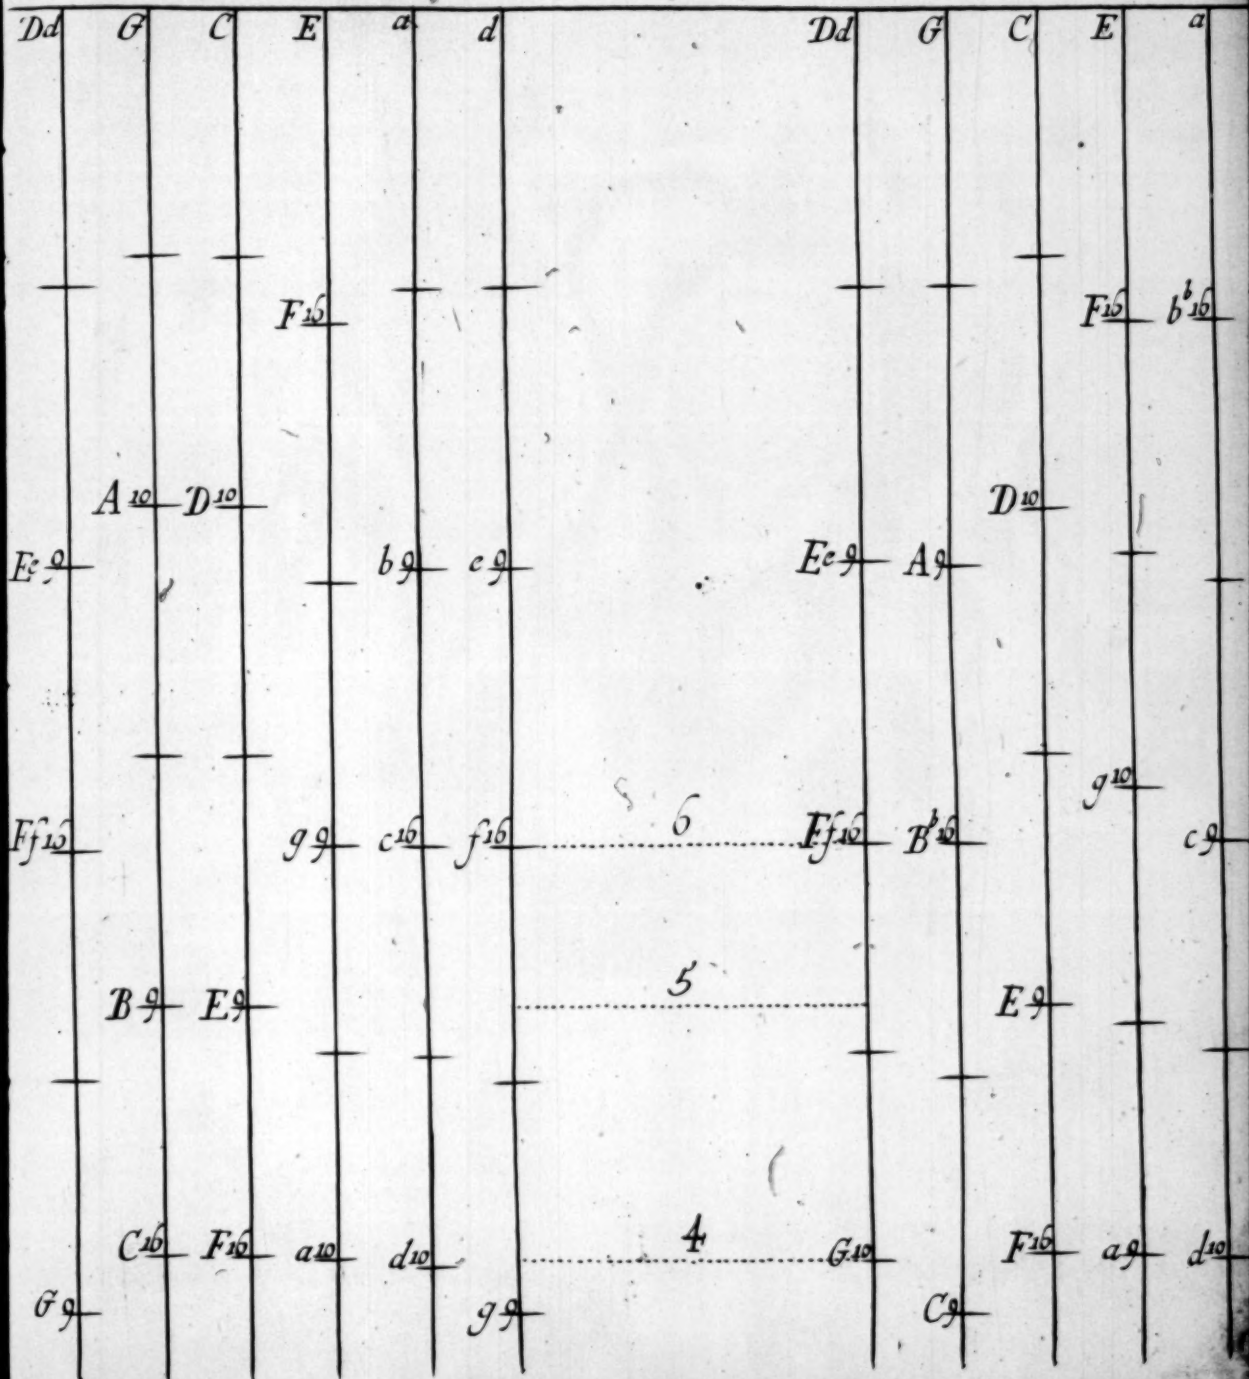 Dd G C E a d Dd G C E a
F16 F16 b♭16
A10 D10 D10
Ee9 b9 e9 Ee9 A9
g10
Ff16 g9 c16 f16 6 Ff16 B♭16 c9
B9 E9 5 E9
C16 F16 a10 d10 4 G10 F16 a9 d10
G9 g9 C9